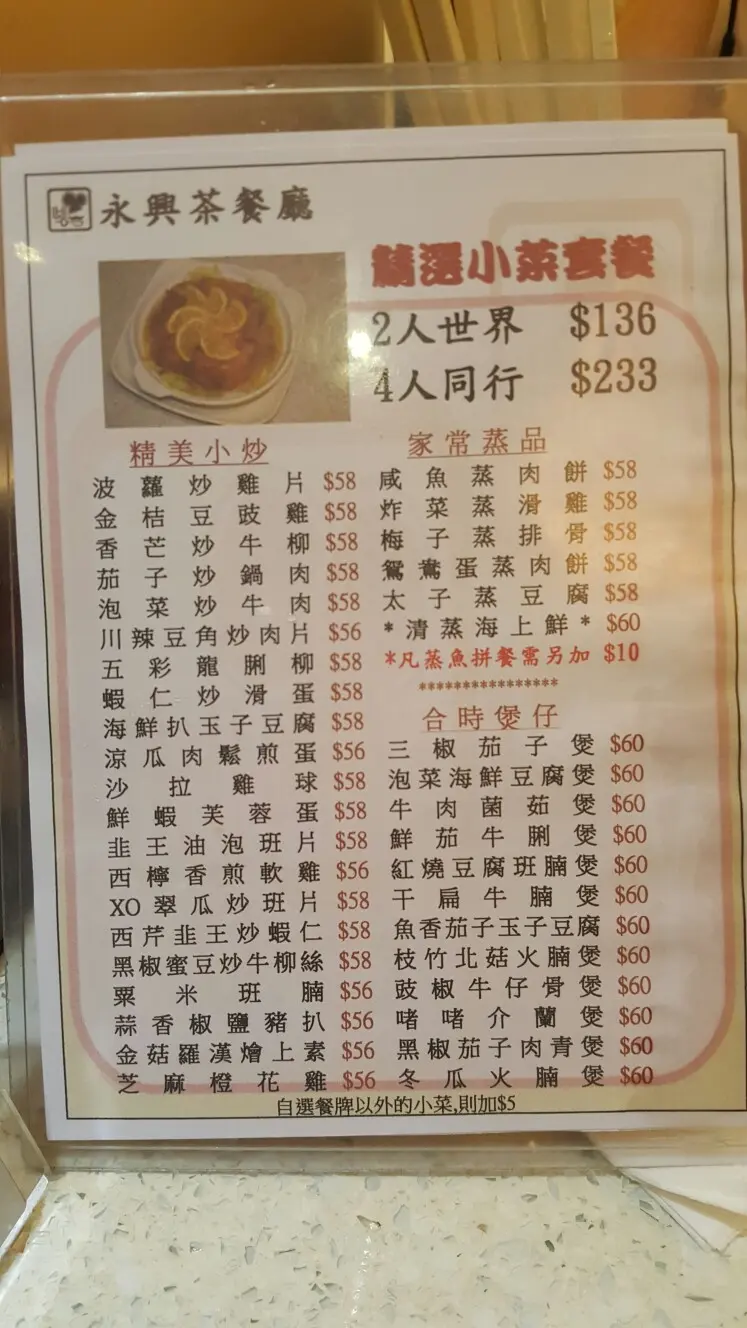 永興茶餐廳
精選小菜套餐
2人世界 $136
4人同行 $233
精美小炒
波蘿炒雞片 $58
金桔豆豉雞 $58
香芒炒牛柳 $58
茄子炒鍋肉 $58
泡菜炒牛肉 $58
川辣豆角炒肉片 $56
五彩龍脷柳 $58
蝦仁炒滑蛋 $58
海鮮扒玉子豆腐 $58
涼瓜肉鬆煎蛋 $56
沙拉雞球 $58
鮮蝦芙蓉蛋 $58
韭王油泡班片 $58
西檸香煎軟雞 $56
XO翠瓜炒班片 $58
西芹韭王炒蝦仁 $58
黑椒蜜豆炒牛柳絲 $58
粟米班腩 $56
蒜香椒鹽豬扒 $56
金菇羅漢燴上素 $56
芝麻橙花雞 $56
家常蒸品
咸魚蒸肉餅 $58
炸菜蒸滑雞 $58
梅子蒸排骨 $58
鴛鴦蛋蒸肉餅 $58
太子蒸豆腐 $58
*清蒸海上鮮* $60
*凡蒸魚拼餐需另加 $10
****************
合時煲仔
三椒茄子煲 $60
泡菜海鮮豆腐煲 $60
牛肉菌茹煲 $60
鮮茄牛脷煲 $60
紅燒豆腐班腩煲 $60
干扁牛腩煲 $60
魚香茄子玉子豆腐 $60
枝竹北菇火腩煲 $60
豉椒牛仔骨煲 $60
啫啫介蘭煲 $60
黑椒茄子肉青煲 $60
冬瓜火腩煲 $60
自選餐牌以外的小菜,則加$5